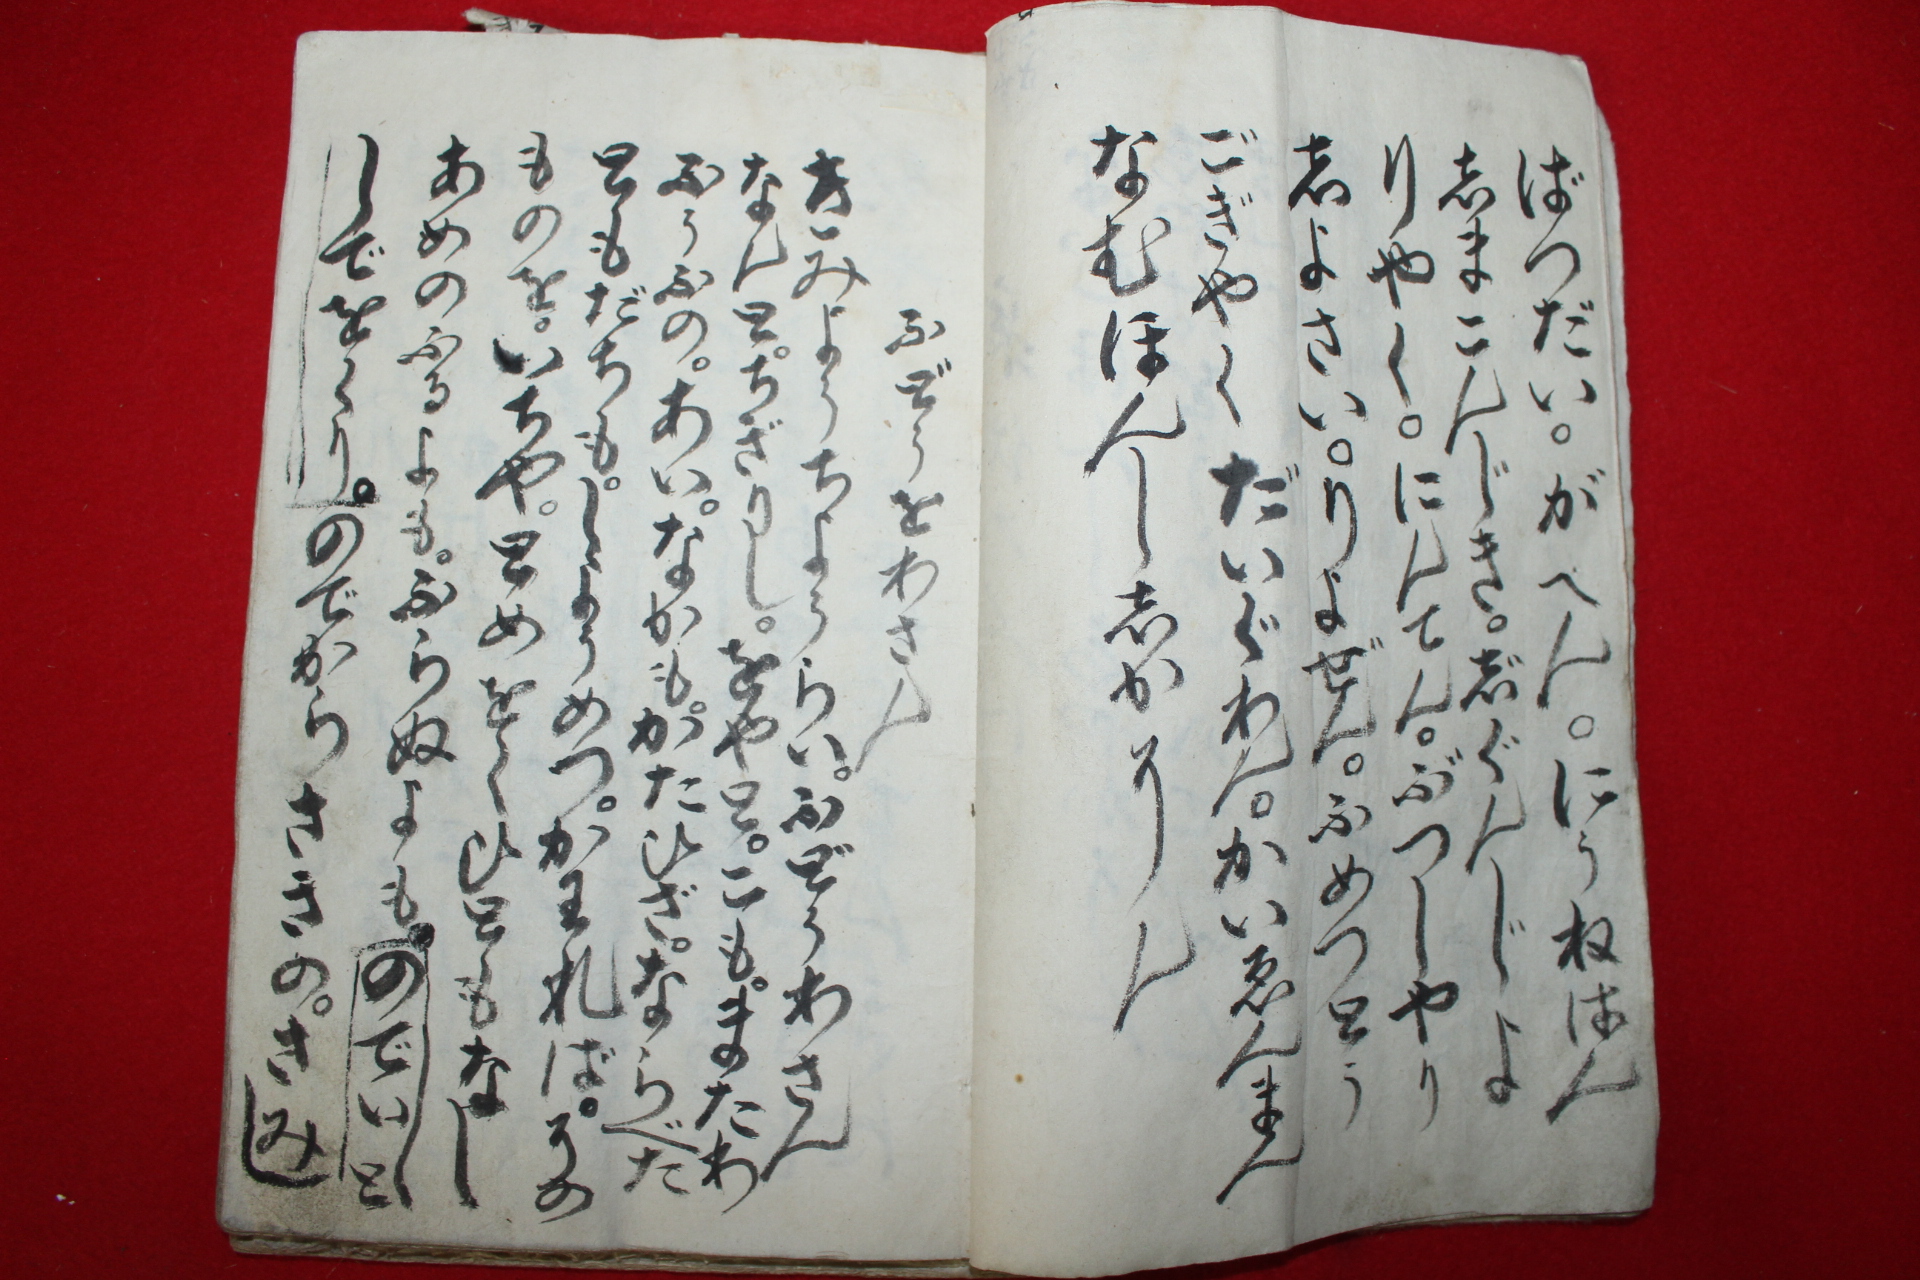 ばつだい。がべん。にうねはん
志まこんじき。志ぐんじよ
りやく。にんてん。ぶつしやり
志よさい。りよぜん。ふめつとう
ごぎやく だいぐわん。かいゑんまん
なむほんし志かそん
ふどうをわさん
きみようちようらい。ふどうわさん
なんと。ちぎりし。をやと。こも。またわ
ふうふの。あい。なかも。かたひざ。ならべた
ともだちも。しようめつ。かわれば。その
ものを。いちや。とめをくひともなし
あめのふるよも。ふらぬよも。のでいと
しでをくり。のでからさきの。きしみ